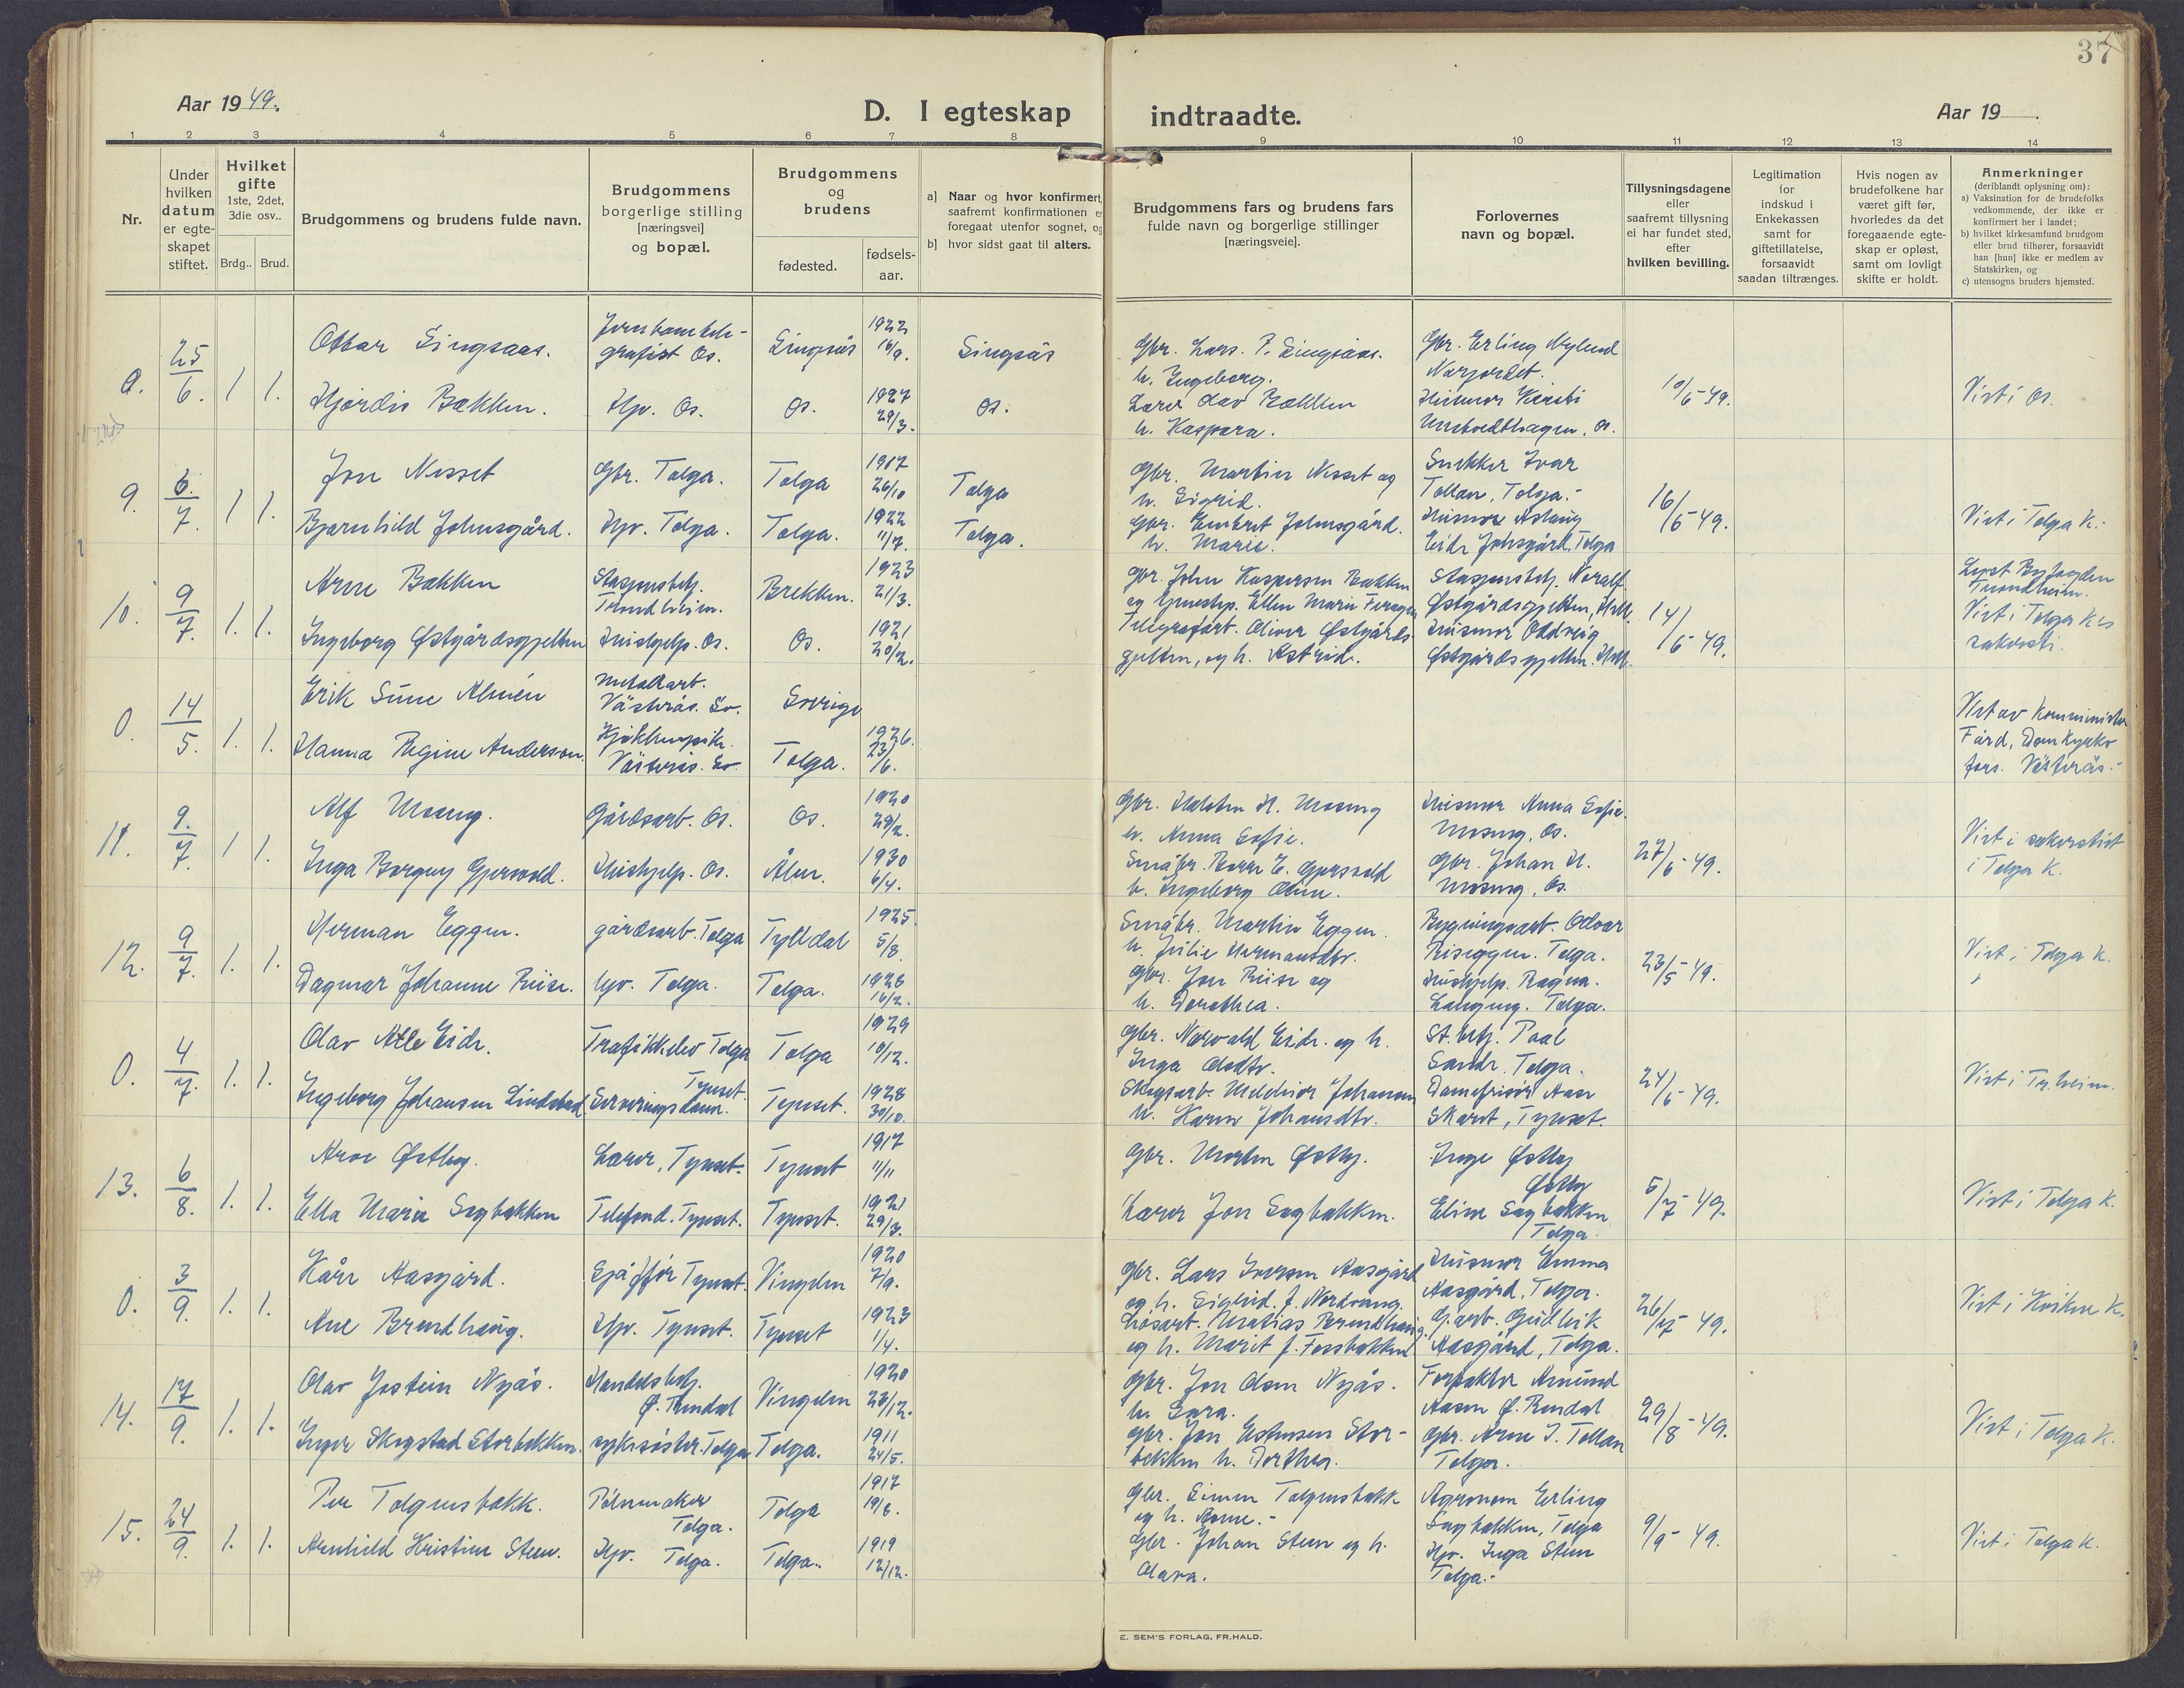 37
Aar 1949.
D. I egteskap indtraadte.
Aar 19
1 2 3 4 5 6 7 8 9 10 11 12 13 14
Nr.
Under hvilken datum er egteskapet stiftet.
Hvilket gifte 1ste, 2det, 3die osv..
Brdg.. Brud.
Brudgommens og brudens fulde navn.
Brudgommens borgerlige stilling [næringsvei] og bopæl.
Brudgommens og brudens
fødested.
fødsels-aar.
a] Naar og hvor konfirmert,
saafremt konfirmationen er
foregaat utenfor sognet, og
b] hvor sidst gaat til alters.
Brudgommens fars og brudens fars
fulde navn og borgerlige stillinger
[næringsveie].
Forlovernes
navn og bopæl.
Tillysningsdagene
eller
saafremt tillysning
ei har fundet sted,
efter
hvilken bevilling.
Legitimation
for
indskud i
Enkekassen
samt for
giftetillatelse,
forsaavidt
saadan tiltrænges.
Hvis nogen av
brudefolkene har
været gift før,
hvorledes da det
foregaaende egte-
skap er opløst,
samt om lovligt
skifte er holdt.
Anmerkninger
(deriblandt oplysning om):
a) Vaksination for de brudefolks
vedkommende, der ikke er
konfirmert her i landet;
b) hvilket kirkesamfund brudgom
eller brud tilhører, forsaavidt
han [hun] ikke er medlem av
Statskirken, og
c) utensogns bruders hjemsted.
0. 25/6. 1 1.
Ottar Singsaas. grafist Os. Singsås 1922 16/9. Singsås
Hjördis Bækken. Hjv. Os. Os. 1927 29/3. Os.
Gbr. Lars. P. Singsaas.
h. Ingeborg.
Lærer Olav Bækken
h. Kaspara.
Gbr. Erling Nylend
Narjordet.
Husmor Kirsti
10/6-49.
Vist i Os.
9. 6./7. 1 1.
Jon Nesset Gbr. Tolga. Tolga 1917 26/10 Tolga
Bjørnhild Johnsgård. Hjv. Tolga. Tolga. 1922 11/7. Tolga.
Gbr. Martin Nesset og
h. Sigrid.
Gbr. Embret Johnsgård.
h. Marie.
Snekker Ivar
Tollan, Tolga.-
Husmor Aslaug
Eide Johnsgård, Tolga
16/6-49.
Vist i Tolga K.-
10. 9/7. 1. 1.
Arne Bækken Stasjonsbetj. Trondheim. Brekken. 1923 21/3.
Ingeborg Østgårdsgjelten Hushjelp. Os. Os. 1921 20/2.
Gbr. John Kaspersen Bækken
Telegrafarb. Oliver Østgårds
gjelten, og h. Astrid.
Stasjonsbetj. Noralf
Østgårdsgjelten,
Husmor Oddveig
Østgårdsgjelten.
14/6-49.
Lyst Byfogden
Trondheim.
Vist i Tolga K's
sakristi.
0. 14/5. 1. 1.
Erik Sune Almén Metallarb. Västerås. Sv. Sverige
Hanna Regine Anderson. Västerås. Sv. Tolga. 1926. 23/6.
Vist av Kommminister
Färd, Domkyrko
förs. Västerås.-
11. 9./7. 1 1.
Alf Moseng. Gårdsarb. Os. Os. 1920 29/2.
Inga Borgny Gjersvold. Hushjelp. Os. Ålen. 1930 6/4.
Gbr. Halsten H. Moseng
h. Anna Sofie.
Småbr. Peder E. Gjersvold
h. Ingeborg Oline.
Husmor Anna Sofie.
Moseng, Os.
Gbr. Johan H.
Moseng, Os.
27/6-49.
Vist i sakristiet
i Tolga K.
12. 9/7. 1. 1.
Herman Eggen. gårdsarb. Tolga Tylldal 1925. 5/8.
Dagmar Johanne Riise. hjv. Tolga. Tolga. 1928 16/2.
Småbr. Martin Eggen.
h. Julie Hermansdtr.
Gbr. Jon Riise og
h. Dorothea.
Bygningsarb. Odvar
Riseggen. Tolga.
Hushjelp. Ragna.
Langeng. Tolga.
23/5-49.
Vist i Tolga K.
0. 4/7. 1. 1.
Olav Atle Eide. Trafikkelev Tolga Tolga 1929 10/12.
Ingeborg Johansen Lindstad Serveringsdame. Tynset. Tynset. 1928 30/10.
Gbr. Norvald Eide. og h.
Inga Olsdtr.
Skogsarb. Melchior Johansen
h. Karen Johansdtr.
St. betj. Paal
Sande. Tolga.
Damefrisør Aase
Skaret, Tynset.
24/6-49.
Vist i Tr.heim.
13. 6/8. 1. 1.
Arve Østby. Lærer, Tynset. Tynset 1917 11/11
Ella Marie Sagbakken Telefond. Tynset. Tynset. 1921 29/3.
Gbr. Morten Østby.
Lærer Jon Sagbakken.
Inge Østby
Østby
Eline Sagbakken
Tolga.
5/7-49.
Vist i Tolga K.
0. 3/9. 1. 1.
Kåre Aasgård. Sjåffør Tynset. Vingelen 1920 7/9.
Ane Brendhaug. Hjv. Tynset. Tynset 1923 1/4.
Gbr. Lars Iversen Aasgård
og h. Sigrid. f. Nordvang.
Løsarb. Matias Brendhaug
og h. Marit f. Fossbakken
Husmor Emma
Aasgård, Tolga.
G.arb. Gudleik
Aasgård, Tolga.
26/7-49.
Vist i Kvikne K.
14. 17/9. 1. 1.
Olav Jostein Nyås. Handelsbetj. Ø. Rendal Vingelen 1920 28/12.
Inger Skogstad Storbekken. sykesøster. Tolga Tolga. 1911 24/5.
Gbr. Jon Olsen Nyås.
h. Sara.
Gbr. Jon Estensen Stor-
bekken h. Dorthea.
Forpakter Amund
Aasen Ø. Rendal
Gbr. Arne J. Tollan
Tolga.
29/8-49.
Vist i Tolga K.
15. 24/9. 1. 1.
Per Tolgensbakk. Pølsemaker Tolga. Tolga 1917 19/6.
Arnhild Kristine Steen. Hjv. Tolga. Tolga. 1919 12/12.
Gbr. Simen Tolgensbakk
og h. Anne.-
Gbr. Johan Steen og h.
Olava.
Agronom Erling
Sagbakken, Tolga
Hjv. Inga Steen
Tolga.-
9/9-49.
Vist i Tolga K.
E. SEM'S FORLAG, FR.HALD.